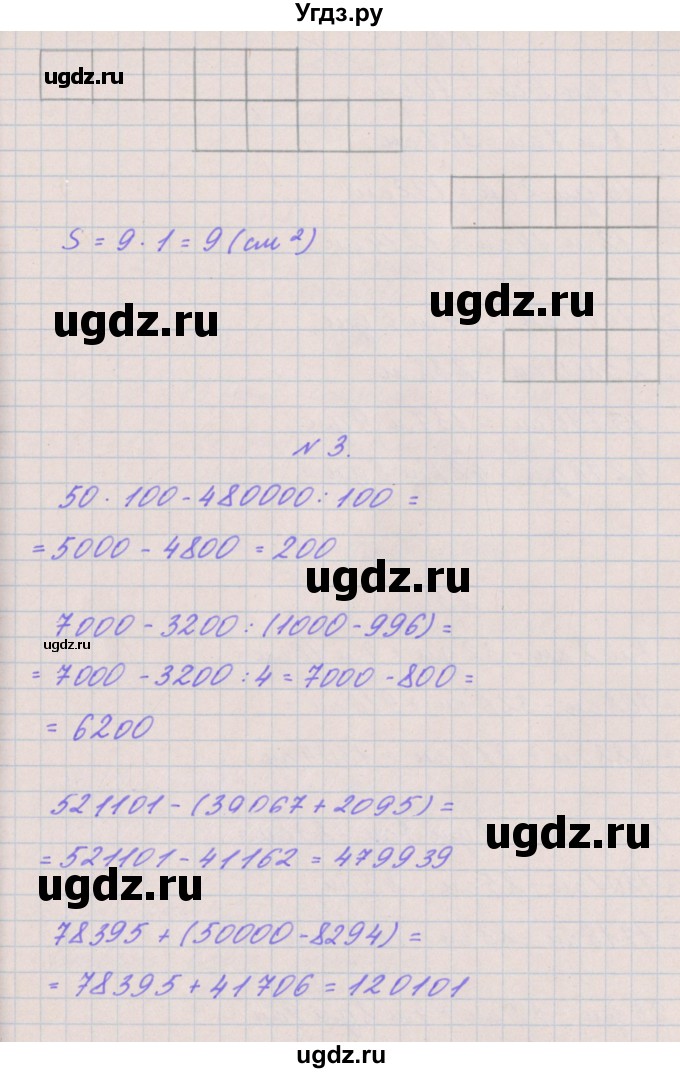 Угдз.ру
ugdz.ru
S = 9 · 1 = 9 (см²)
ugdz.ru
ugdz.ru
№ 3.
50 · 100 - 480000 : 100 =
= 5000 - 4800 = 200
ugdz.ru
7000 - 3200 : (1000 - 996) =
ugdz.ru
= 7000 - 3200 : 4 = 7000 - 800 =
= 6200
521101 - (39067 + 2095) =
ugdz.ru
= 521101 - 41162 = 479939
ugdz.ru
78395 + (50000 - 8294) =
= 78395 + 41706 = 120101
ugdz.ru